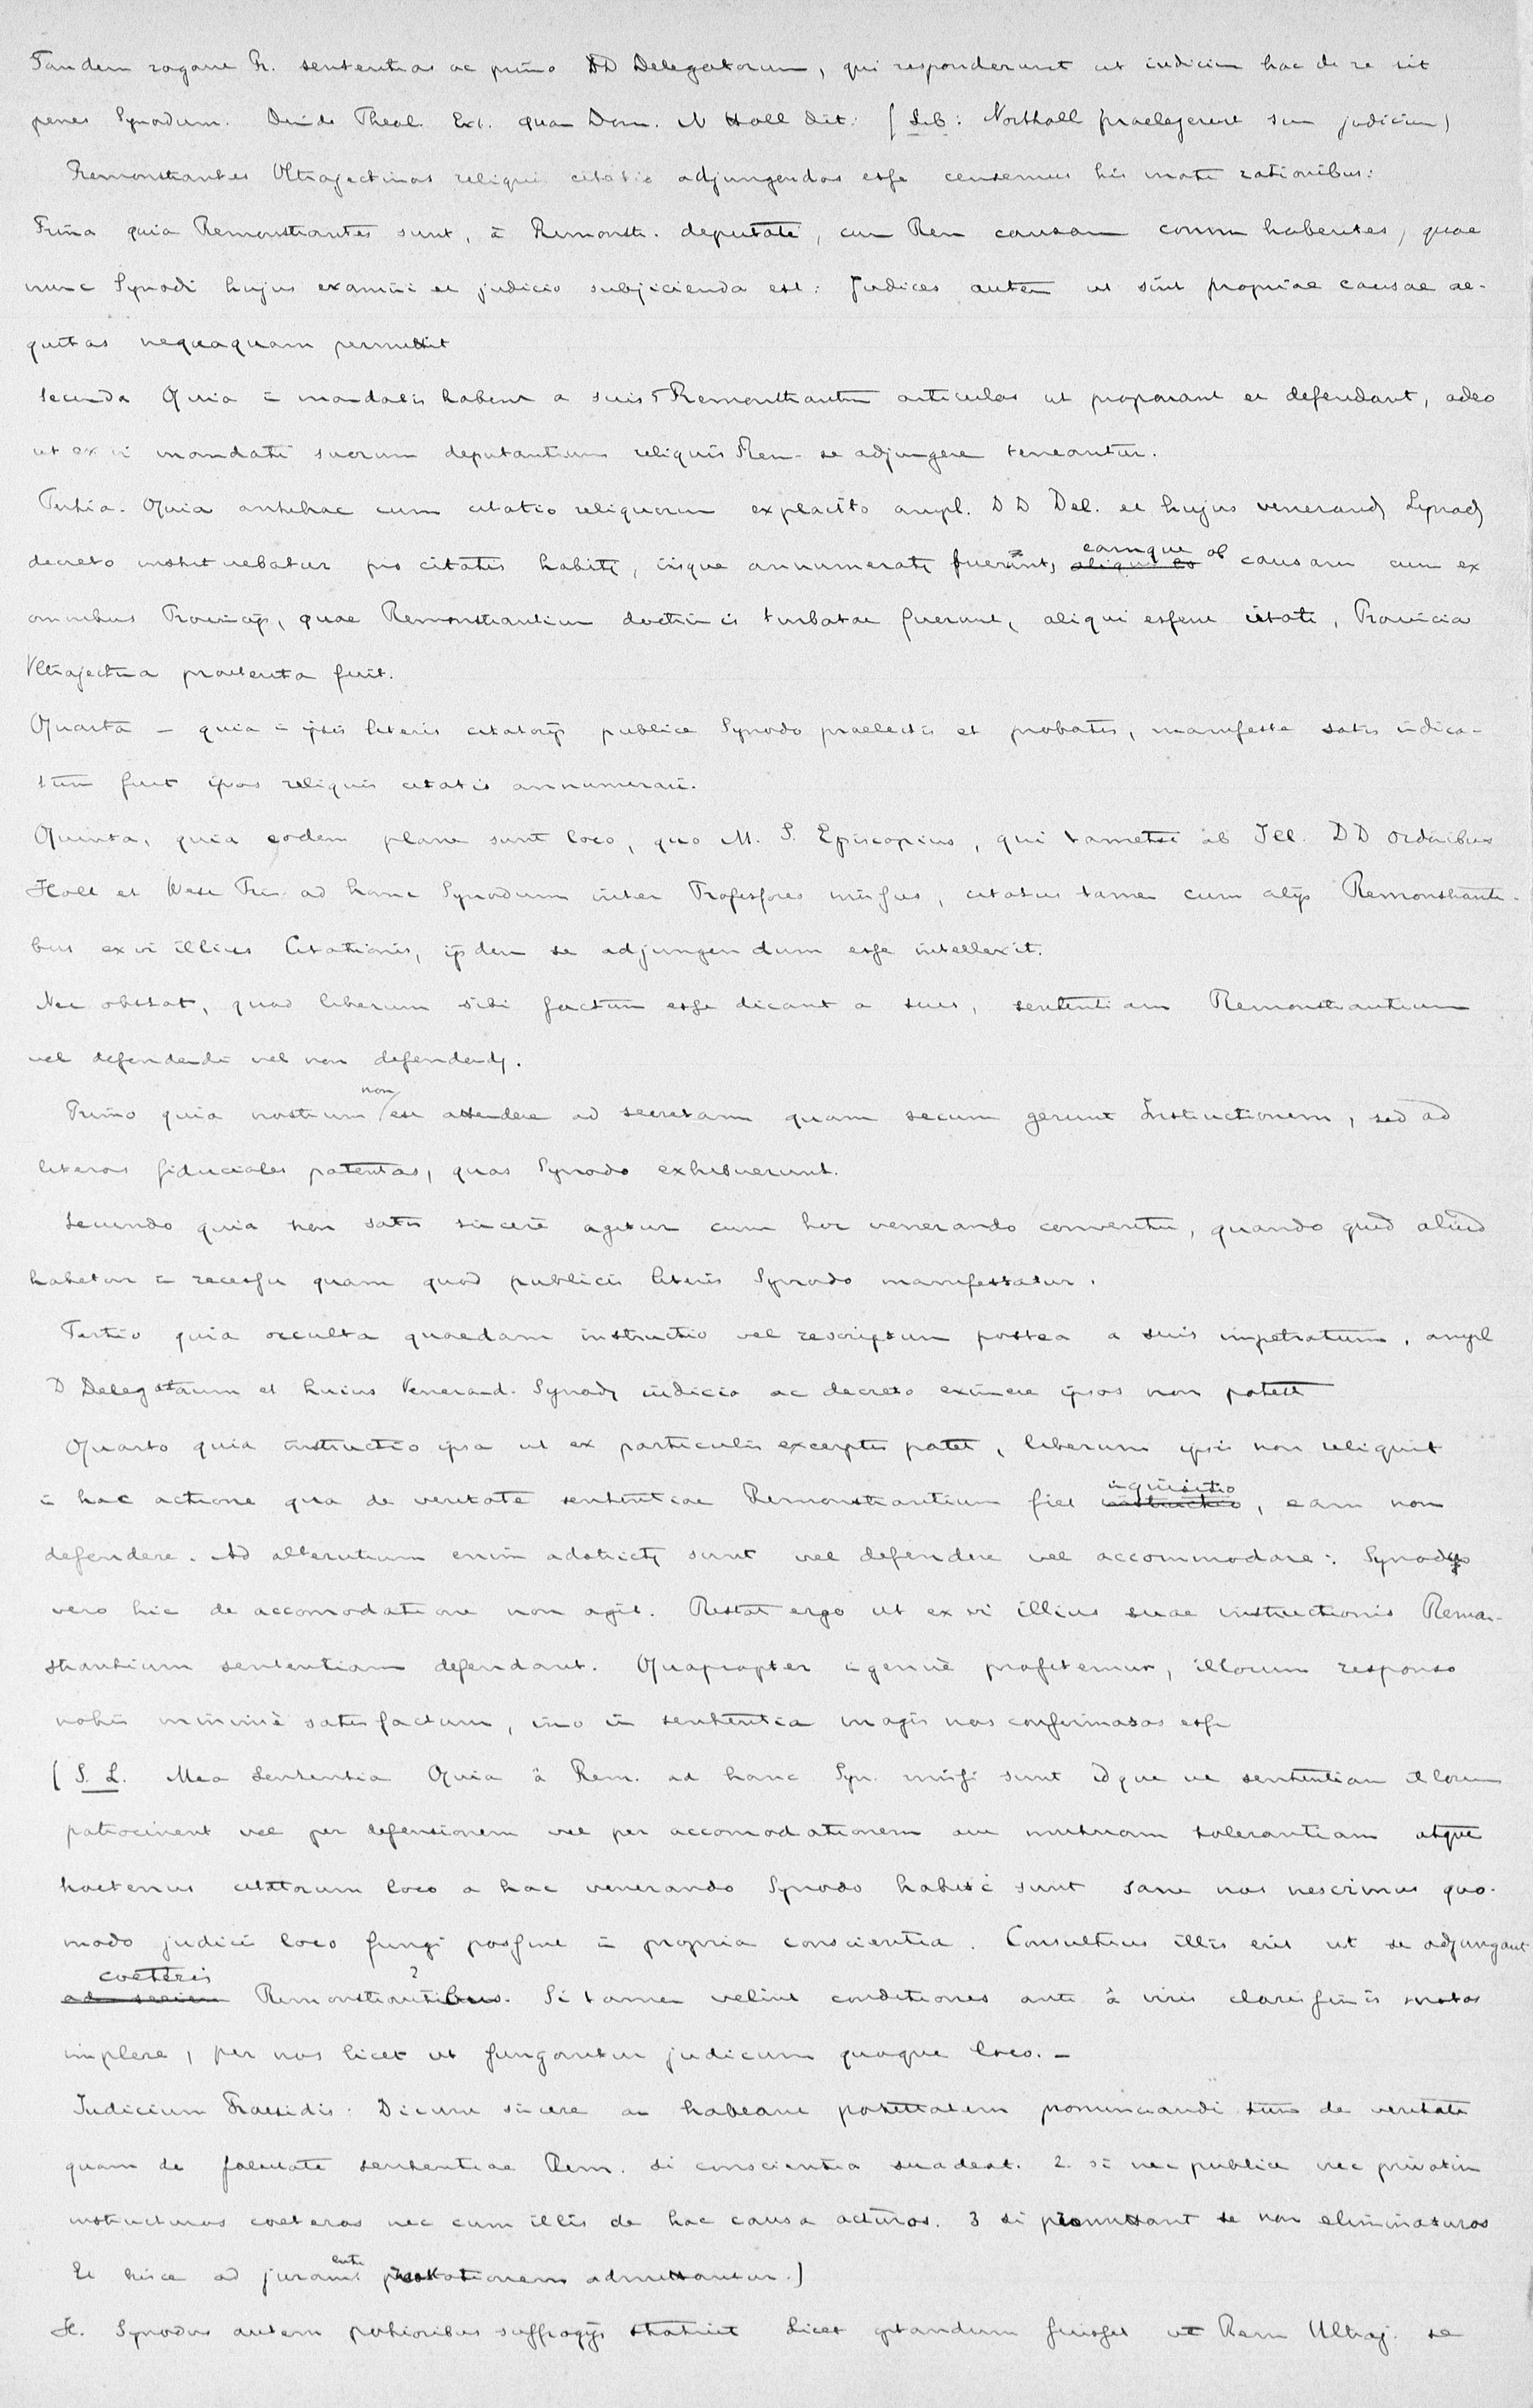 Tandem rogare Pr. sententias ac primo DD Delegatorum, qui responderunt ut iudicium hac de re sit
penes Synodum. Deinde Theol. Ext. quam Dom. N Hall dict. (Lib: Northall praelegerent suum judicium)
Remonstrantes Ultrajectinos reliquis citatis adjungendos esse censemus his moti rationibus:
Prima quia Remonstrantes sunt, à Remonstr. deputati, cum Rem causam comm habentes, quae
nunc Synodi hujus examini et judicio subjicienda est: Judices autem ut sint propriae causae ae-
quitas nequaquam permittit
Secunda Quia in mandatis habent a suis 5 Remonstrantium articulos ut proponant et defendant, adeo
ut ex vi mandati suorum deputantium reliquis Rem- se adjungere teneantur.
Tertia. Quia antehac cum citatio reliquorum ex placito ampl. DD Del. et hujus venerandj Synodj
decreto instituebatur pro citatis habitj, iisque annumeratj fuerint, eamque ob causam cum ex
omnibus Provincijs, quae Remonstrantium doctrinis turbatae fuerant, aliqui essent citati, Provincia
Ultrajectina praeterita fuit.
Quarta – quia in ipsis literis citatorijs publice Synodo praelectis et probatis, manifeste satis indica-
tum fuit ipsos reliquis citatis annumerari.
Quinta, quia eodem plane sunt loco, quo M. S. Episcopius, qui tametsi ab Ill. DD Ordinibus
Holl et West Fris ad hanc Synodum inter Professores missus, citatus tamen cum alijs Remonstranti-
bus ex vi illius Citationis, ijsdem se adjungendum esse intellexit.
Nec obstat, quod liberum sibi factum esse dicant a suis, sententiam Remonstrantium
vel defendendi vel non defendendj.
Primo quia nostrum non est attendere ad secretam quam secum gerunt Instructionem, sed ad
literas fiduciales patentas, quas Synodo exhibuerunt.
Secundo quia non satis sincerè agitur cum hoc venerando conventu, quando quid aliud
habetur in recessu quam quod publicis literis Synodo manifestatur.
Tertio quia occulta quaedam instructio vel rescriptum postea a suis impetratum, ampl
D Delegatorum et huius Venerand. Synodj iudicio ac decreto eximere ipsos non potest
Quarto quia instructio ipsa ut ex particulis excerptis patet, liberum ipsis non reliquit
in hac actione qua de veritate sententiae Remonstrantium fiet inquisitio, eam non
defendere. Ad alterutrum enim adstrictj sunt vel defendere vel accommodare: Synodus
vero hic de accomodatione non agit. Restat ergo ut ex vi illius suae instructionis Remon-
strantium sententiam defendant. Quapropter ingenuè profitemur, illorum responso
nobis minimè satisfactum, imo in sententia magis nos confirmatos esse
( S. L. Mea Sententia Quia à Rem. ad hanc Syn. missi sunt idque ut sententiam illorum
patrocinent vel per defensionem vel per accomodationem aut mutuam tolerantiam atque
hactenus citatorum loco a hac venerando Synodo habiti sunt sane nos nescimus quo-
modo judicis loco fungi possint in propria conscientia. Consultius illis erit ut se adjungant
coeteris Remonstrantibus. Si tamen velint conditiones ante à viris clarissimis motas
implere, per nos licet ut fungantur judicum quoque loco. –
Judicium Praesidis. Dicant sincere an habeant potestatem pronunciandi tum de veritate
quam de falsitate sententiae Rem. si conscientia suadeat. 2. si nec publice nec privatim
instructuros coeteros nec cum illis de hac causa acturos. 3 si promittant se non eliminaturos
Et hisce ad juramenti praestationem admittantur.)
H. Synodus autem potioribus suffragijs statuit licet optandum fuisset ut Rem Ultraj. se